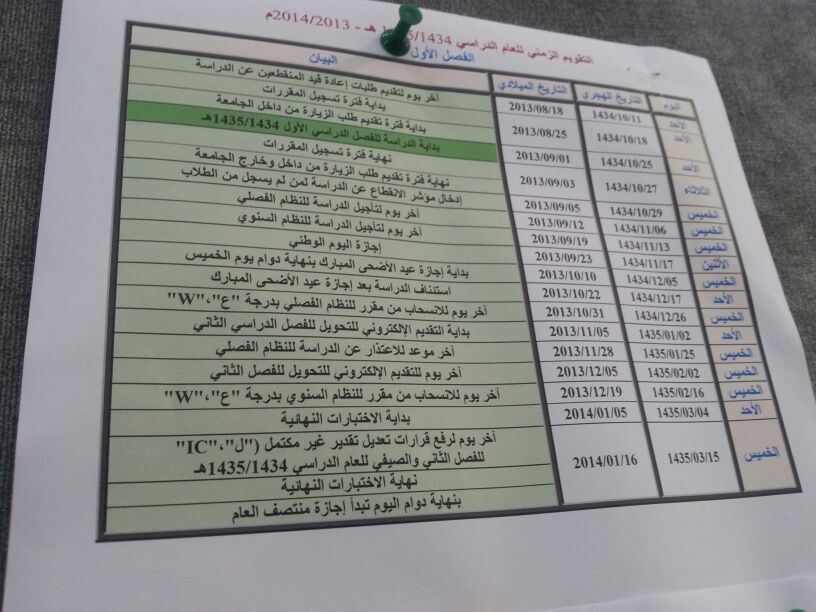 التقويم الزمني للعام الدراسي 1435/1434 هـ - 2014/2013م
الفصل الأول
اليوم التاريخ الهجري التاريخ الميلادي البيان
الأحد 1434/10/11 2013/08/18 آخر يوم لتقديم طلبات إعادة قيد المنقطعين عن الدراسة
بداية فترة تسجيل المقررات
الأحد 1434/10/18 2013/08/25 بداية فترة تقديم طلب الزيارة من داخل الجامعة
الأحد 1434/10/25 2013/09/01 بداية الدراسة للفصل الدراسي الأول 1435/1434هـ
الثلاثاء 1434/10/27 2013/09/03 نهاية فترة تسجيل المقررات
نهاية فترة تقديم طلب الزيارة من داخل وخارج الجامعة
الخميس 1434/10/29 2013/09/05 إدخال مؤشر الانقطاع عن الدراسة لمن لم يسجل من الطلاب
الخميس 1434/11/06 2013/09/12 آخر يوم لتأجيل الدراسة للنظام الفصلي
الخميس 1434/11/13 2013/09/19 آخر يوم لتأجيل الدراسة للنظام السنوي
الأثنين 1434/11/17 2013/09/23 إجازة اليوم الوطني
الخميس 1434/12/05 2013/10/10 بداية إجازة عيد الأضحى المبارك بنهاية دوام يوم الخميس
الأحد 1434/12/17 2013/10/22 استئناف الدراسة بعد إجازة عيد الأضحى المبارك
الخميس 1434/12/26 2013/10/31 آخر يوم للانسحاب من مقرر للنظام الفصلي بدرجة "ع"،"W"
الأحد 1435/01/02 2013/11/05 بداية التقديم الإلكتروني للتحويل للفصل الدراسي الثاني
الخميس 1435/01/25 2013/11/28 آخر موعد للاعتذار عن الدراسة للنظام الفصلي
الخميس 1435/02/02 2013/12/05 آخر يوم للتقديم الإلكتروني للتحويل للفصل الثاني
الخميس 1435/02/16 2013/12/19 آخر يوم للانسحاب من مقرر للنظام السنوي بدرجة "ع"،"W"
الأحد 1435/03/04 2014/01/05 بداية الاختبارات النهائية
الخميس 1435/03/15 2014/01/16 آخر يوم لرفع قرارات تعديل تقدير غير مكتمل ("ل"،"IC"
للفصل الثاني والصيفي للعام الدراسي 1435/1434هـ
نهاية الاختبارات النهائية
بنهاية دوام اليوم تبدأ إجازة منتصف العام